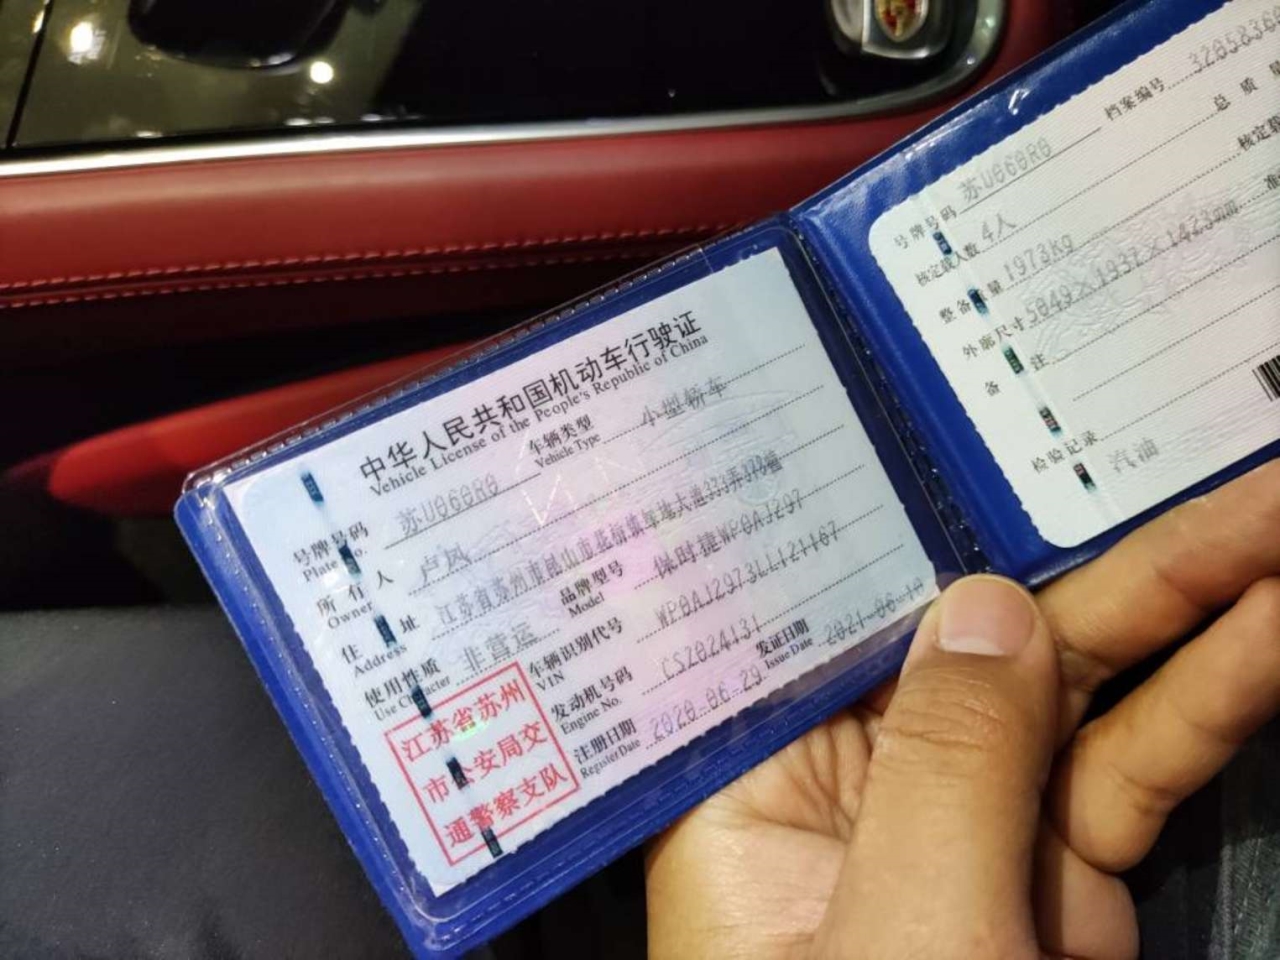 中华人民共和国机动车行驶证
Vehicle License of the People's Republic of China
号牌号码 苏U060R0 车辆类型 小型轿车
Plate No. Vehicle Type
所有人 卢凤
Owner
住址 江苏省苏州市昆山市花桥镇绿地大道333弄
Address
使用性质 非营运 品牌型号 保时捷WP0AJ297
Use Character Model
车辆识别代号 WP0AJ2973LL121167
VIN
发动机号码 CSZ024131
Engine No.
注册日期 2020-06-29 发证日期 2021-06-10
Register Date Issue Date
江苏省苏州
市公安局交
通警察支队
号牌号码 苏U060R0 档案编号 3205836
核定载人数 4人 总质量
整备质量 1973kg 核定载
外廓尺寸 5049×1937×1423mm 准
备注
检验记录
汽油